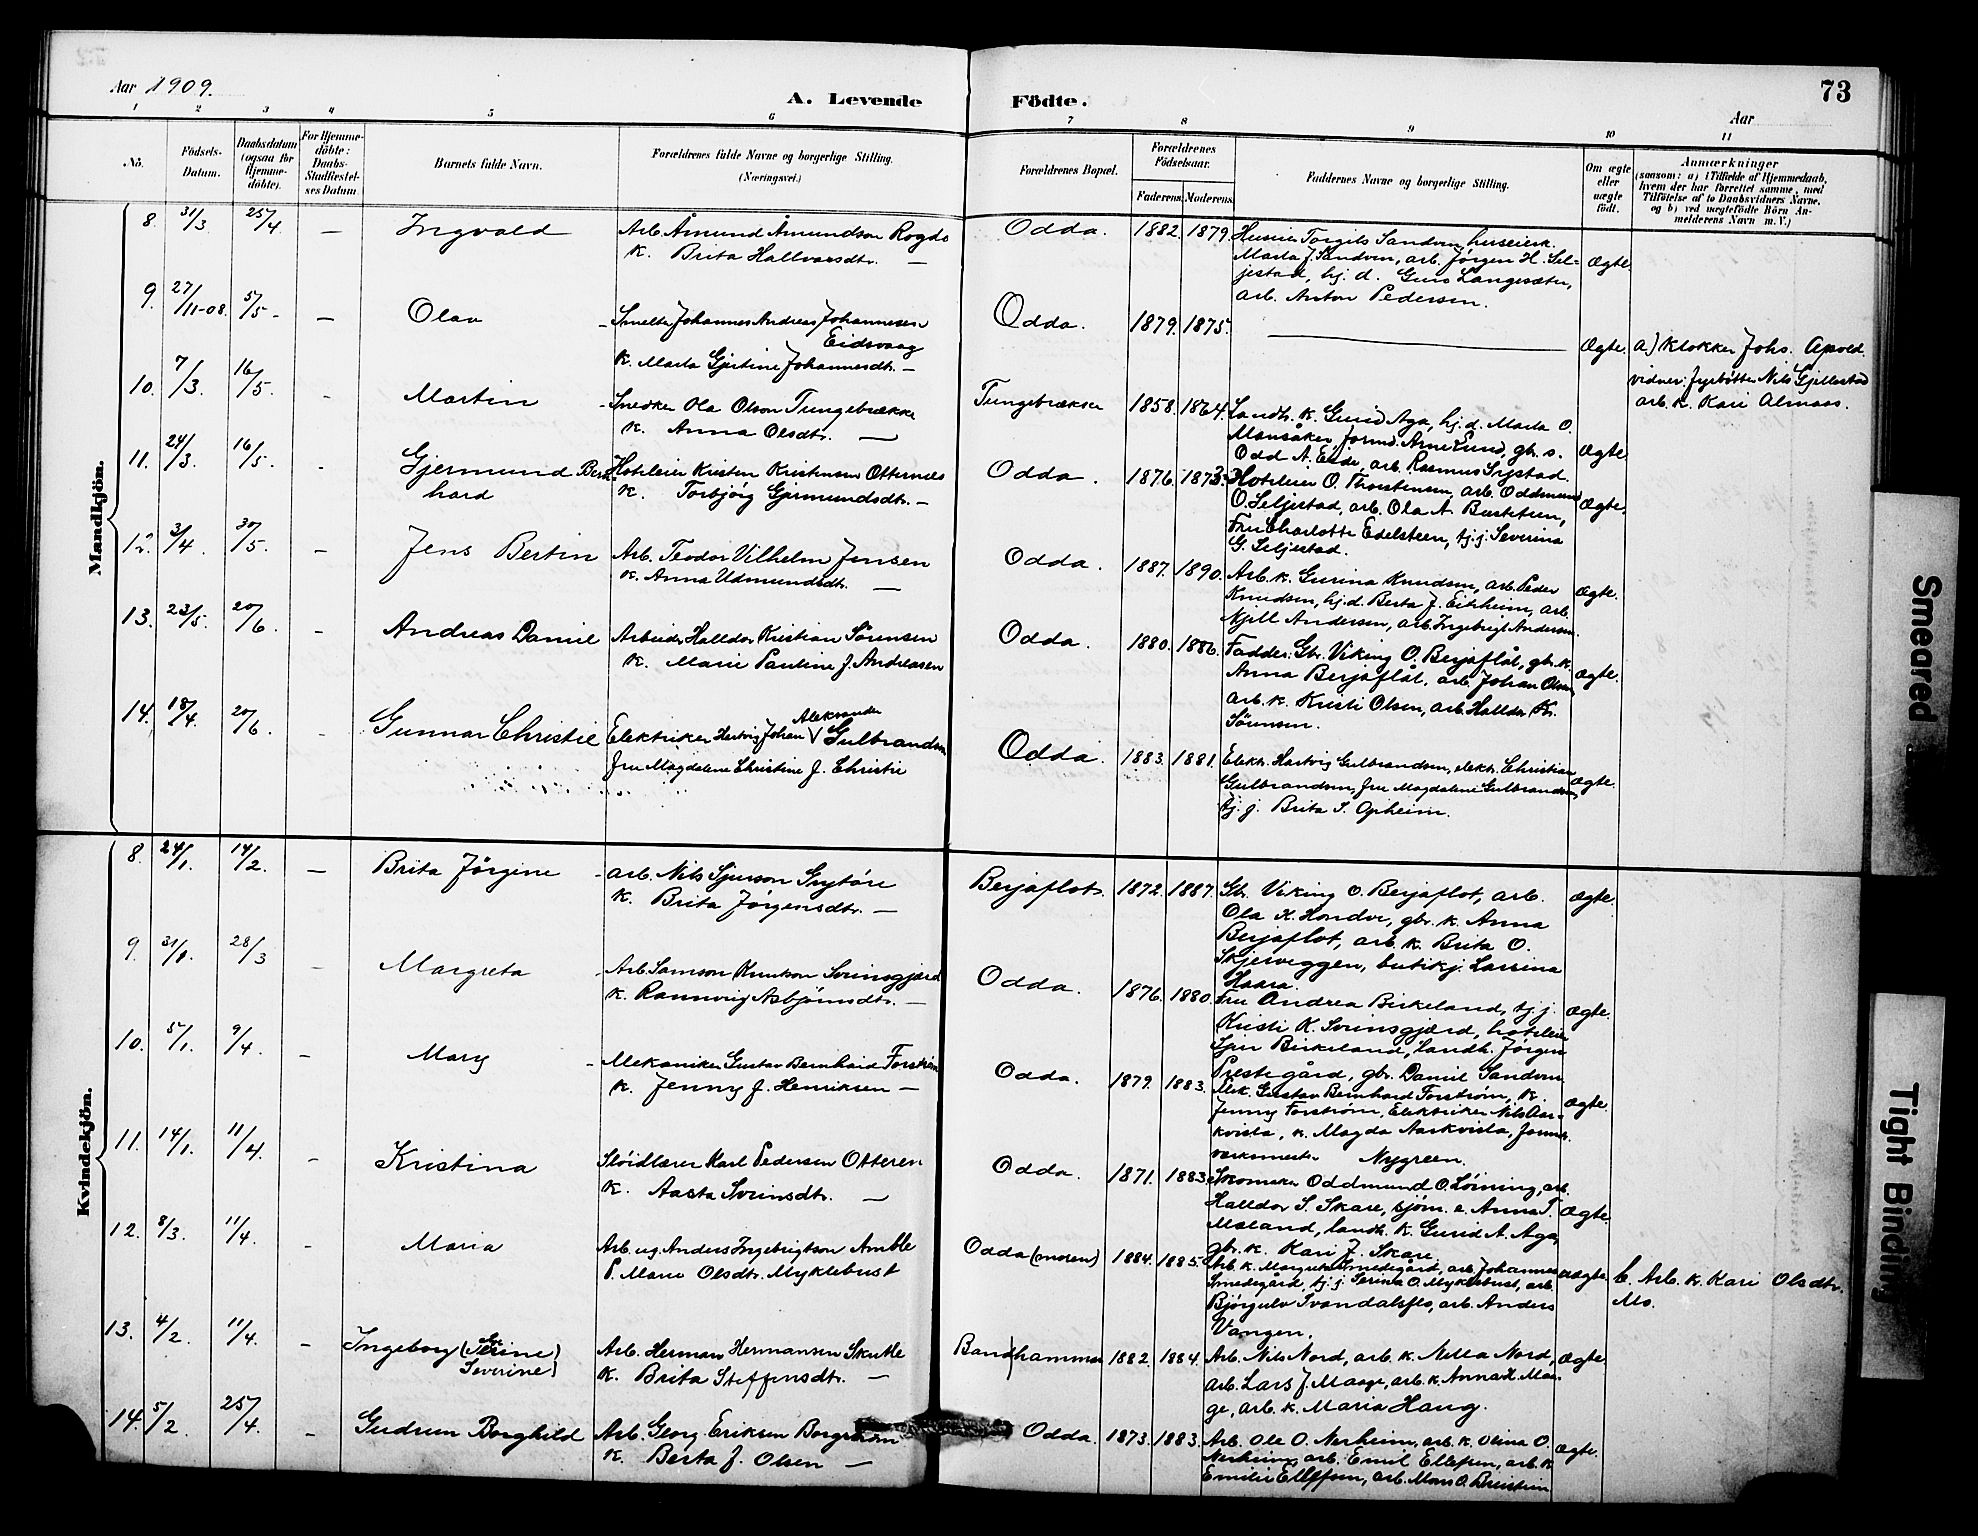 Aar 1909.
A. Levende
Födte.
73
Aar
1 2 3 4 5 6 7 8 9 10 11
No.
Födsels-Datum.
Daabsdatum (ogsaa för Hjemme-döbte).
For Hjemme-döbte: Daabs-Stadfæstelses Datum.
Barnets fulde Navn.
Forældrenes fulde Navne og borgerlige Stilling. (Næringsvei.)
Forældrenes Bopæl.
Forældrenes Födselsaar.
Faderens. Moderens.
Faddernes Navne og borgerlige Stilling.
Om ægte eller uægte födt.
Anmærkninger
(saasom: a) i Tilfælde af Hjemmedaab, hvem der har forrettet samme, med Tilföielse af to Daabsvidners Navne, og b) ved uægtefödte Börn Anmelderens Navn m. V.)
Mandkjön.
8. 31/3 25/4. — Ingvald
Arb. Åmund Åmundson Rogde
K. Brita Hallvarsdtr. —
Odda. 1882. 1879.
Torgils Sandven,
Marta J. Sandven, arb. Jørgen H. Sel-
jestad, hj. d. Guro Langesæter,
arb. Anton Pedersen.
Ægte.
9. 27/11-08. 5/5 — Olav
Smelte Johannes Andreas Johannesen
Eidsvaag
K. Marta Gjertine Johannesdtr. —
Odda. 1879. 1875.
Ægte.
a) Klokker Johs. Apold.
vidner: Nils Gjellestad
arb. k. Kari Almaas.
10. 7/3. 16/5. - Martin
Snedker Ola Olson Tungebrække
K. Anna Olsdtr. —
Tungebrække 1858. 1864.
Landh. k. Gurid Aga, hj. d. Marta O.
Mansåker, form. Arne Lund, gb. s.
Odd A. Eide, arb. Rasmus
Ægte
11. 24/3. 16/5. - Gjermund Bern-
hard
Hoteleier Kristen Kristensen Otternes
K. Torbjörg Gjermundsdtr. —
Odda. 1876. 1873.
Hoteleier O. Thorstensen, arb. Oddmund
O. Seljestad, arb. Ola A. Bustetun,
Fru Charlotte Edelsteen, tj. j. Severina
G. Seljestad.
Ægte.
12. 3/4. 30/5. - Jens Bertin
Arb. Teodor Vilhelm Jensen
K. Anna Udmundsdtr. —
Odda. 1887. 1890.
Arb. k. Gurina Knudsen, arb. Peder
Knudsen, hj. d. Berta J. Eitrheim, arb.
Kjell Andersen, arb. Ingebrigt Andersen.
Ægte.
13. 23/5. 20/6. - Andreas Daniel
Arbeider Halldor Kristian Sörensen
K. Marie Pauline J. Andreasen
Odda. 1880. 1886.
Fadder: Gbr. Viking O. Berjaflåt, gbr. k.
Anna Berjaflåt. arb. Johan Olsen,
arb. k. Kristi Olsen, arb. Halldor Kr.
Sörensen.
Ægte.
14. 18/4. 20/6. - Gunnar Christie
Aleksander
Elektriker Hartvig Johan V Gulbrandsen
fru Magdalene Christine J. Christie
Odda. 1883. 1881.
Elektr. Hartvig Gulbrandsen, elektr. Christian
Gulbrandsen, fru Magdalene Gulbrandsen,
tj. j. Brita S. Opheim.
Ægte.
Kvindekjön.
8. 24/1. 14/2. — Brita Jörgine
arb. Nils Sjurson Grytöre
K. Brita Jörgensdtr. —
Berjaflot. 1872. 1887.
Gbr. Viking O. Berjaflot, arb.
Ola K. Hondve, gbr. k Anna
Berjaflot, arb. k. Brita O.
Skjerveggen, butikj. Larsina
Haara.
Ægte.
9. 31/1. 28/3 - Margreta
Arb. Samson Knutson Sveinsgjærd
K. Rannveig Asbjörnsdtr. —
Odda. 1876. 1880.
Fru Andrea Birkeland, tj. j.
Kristi K. Sveinsgjærd, hoteleier
Birkeland, landh. Jørgen
Prestegård, gbr. Daniel Sandven
Ægte.
10. 5/1. 9/4. - Mary
Mekaniker Gustav Bernhard Forström
K. Jenny J. Henriksen —
Odda. 1879. 1883.
Mek. Gustav Bernhard Forström, K.
Jenny Forström, Elektriker Nils Aar-
kvisla, k. Magda Aarkvisla, form.
verksmester Nygreen.
Ægte.
11. 14/1. 11/4. - Kristina
Slöidlærer Karl Pedersen Otteren
K. Aasta Sveinsdtr. —
Odda. 1871. 1883.
Skomaker Oddmund O. Löining, arb.
Halldor S. Skare, sjöm. e. Anna T.
Mæland, landh. k. Gurid A. Aga
gbr. k. Kari J. Skare.
Ægte.
12. 8/3. 11/4. - Maria
Arb. ug. Anders Ingebrigtson Amble
P. Marie Olsdtr. Myklebust
Odda (moren) 1884. 1885.
Arb. k. Margreta Smedegård, arb. Johannes
Smedegård, tj. j. Serina O. Myklebust, arb.
Björgulv Svandalsflo, arb. Anders
Vangen.
uægte.
b. Arb. k. Kari Olsdtr.
Mo.
13. 4/2. 11/4. - Ingeborg (Serine)
Severine)
Arb. Herman Hermansen Skutle
K. Brita Steffensdtr. —
Bandhammer 1882. 1884.
Arb. Nils Nord, arb. k. Nella Nord,
arb. Lars J. Maage, arb. k. Anna L. Maa-
ge, arb. k. Maria Haug.
Ægte.
14. 5/2. 25/4. - Gudrun Borghild
Arb. Georg Eriksen Borgström
K. Berta J. Olsen —
Odda. 1873. 1883.
Arb. Ole O. Nerheim, arb. k. Olina O.
Nerheim, arb. Emil Ellefsen, arb. k
Emilie Ellefsen, arb. Mons O.
Ægte.
Smeared
Tight Binding